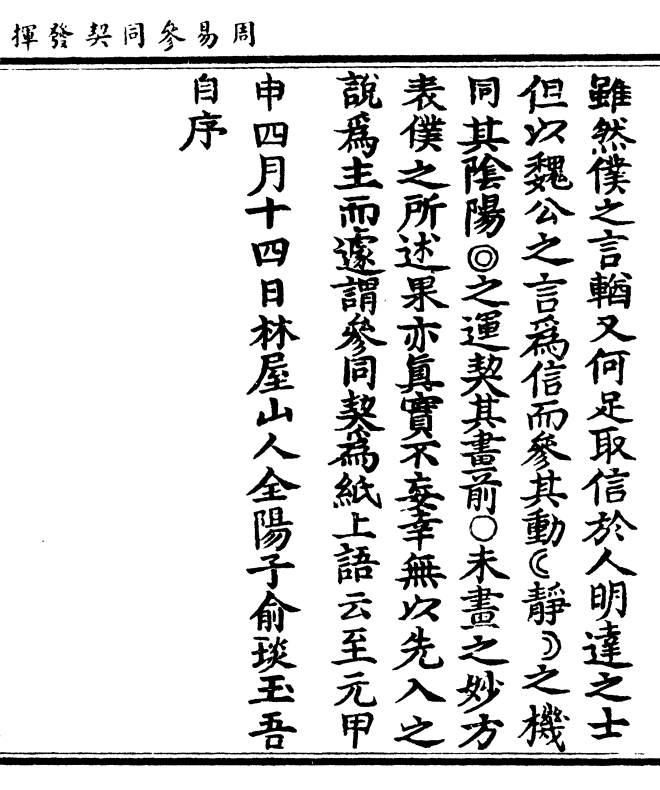 周易參同契發揮
雖然僕之言輶又何足取信於人明達之士
但以魏公之言爲信而參其動☾靜☽之機
同其陰陽◎之運契其畫前○未畫之妙方
表僕之所述果亦眞實不妄幸無以先入之
說爲主而遽謂參同契爲紙上語云至元甲
申四月十四日林屋山人全陽子俞琰玉吾
自序